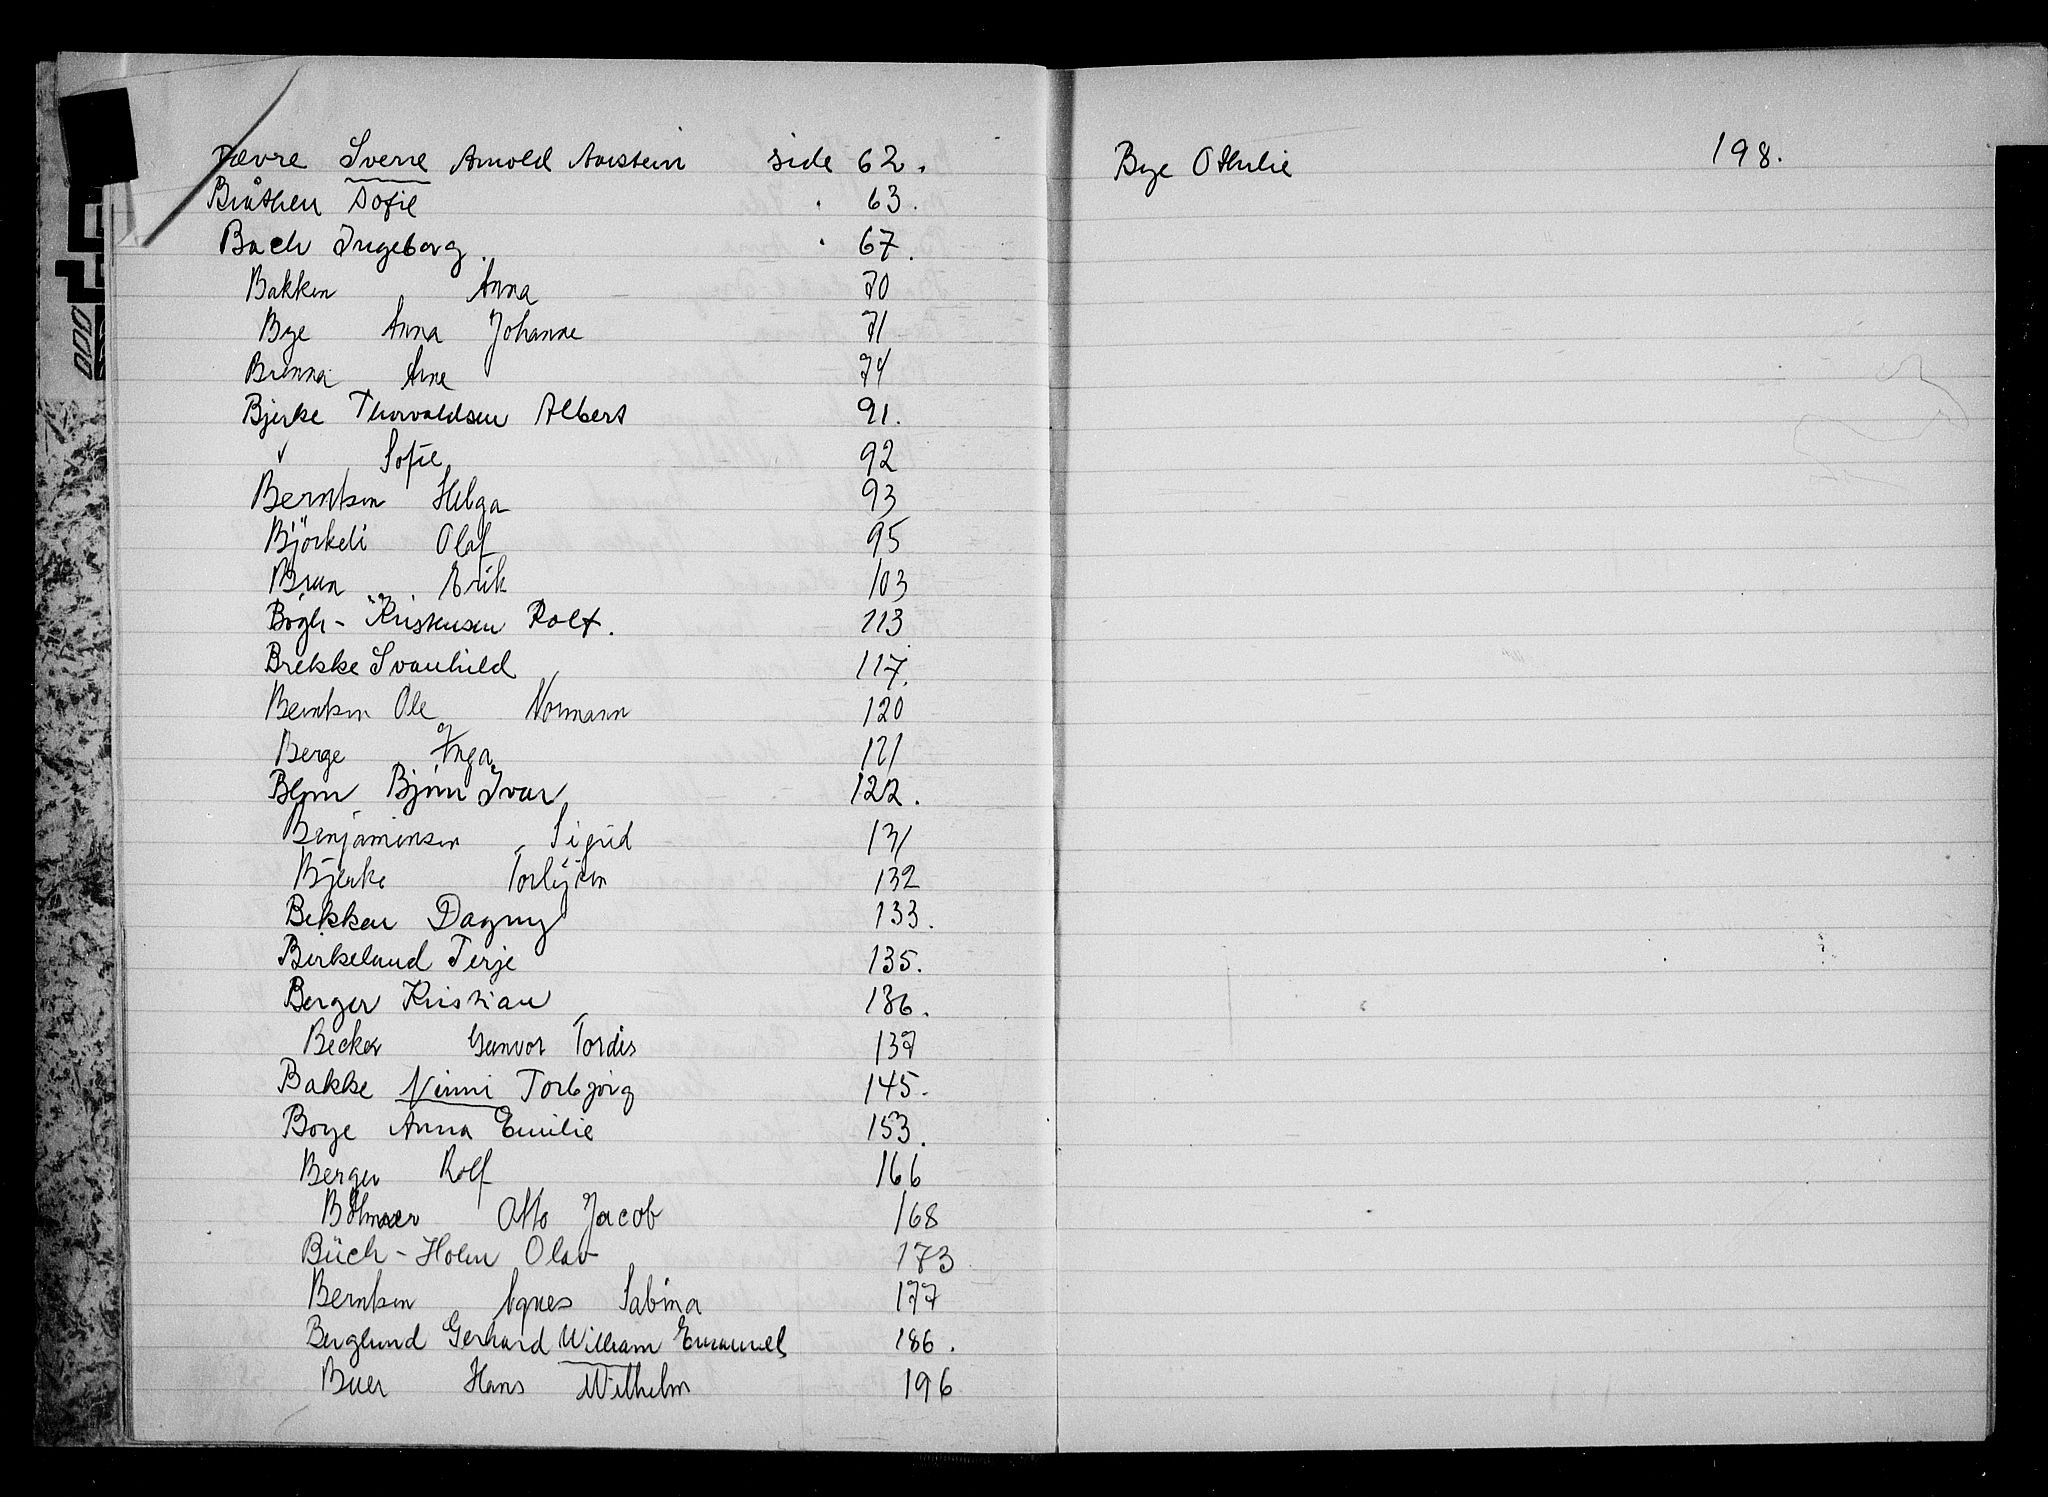 Bævre Sverre Arnold Austein side 62.
Bråthen Sofie " 63.
Bach Ingeborg. " 67.
Bakken Anna 70
Bye Anna Johanne 71
Brenna Arne 74
Bjerke Thorvaldsen Albert 91.
" Sofie 92
Berntsen Helga 93
Björkeli Olaf 95
Brun Erik 103
Bögh-Kristensen Rolf. 113
Brekke Svanhild 117.
Berntsen Ole Normann 120
Berge Inga 121
Blom Bjørn Ivar 122.
Benjaminsen Sigrid 131
Bjerke 132
Bekken Dagny 133.
Birkeland Terje 135.
Berger Kristian 136.
Becker Gunvor Tordis 137
Bakke Ninni Torbjørg 145.
Boye Anna Emilie 153.
Berger Rolf 166
Böhmer Otto Jacob 168
Büch-Holm Olav 173
Berntsen Agnes Sabina 177
Berglund Gerhard William Emanuel 186.
Buer Hans Wilhelm 196
Bye Othilie 198.